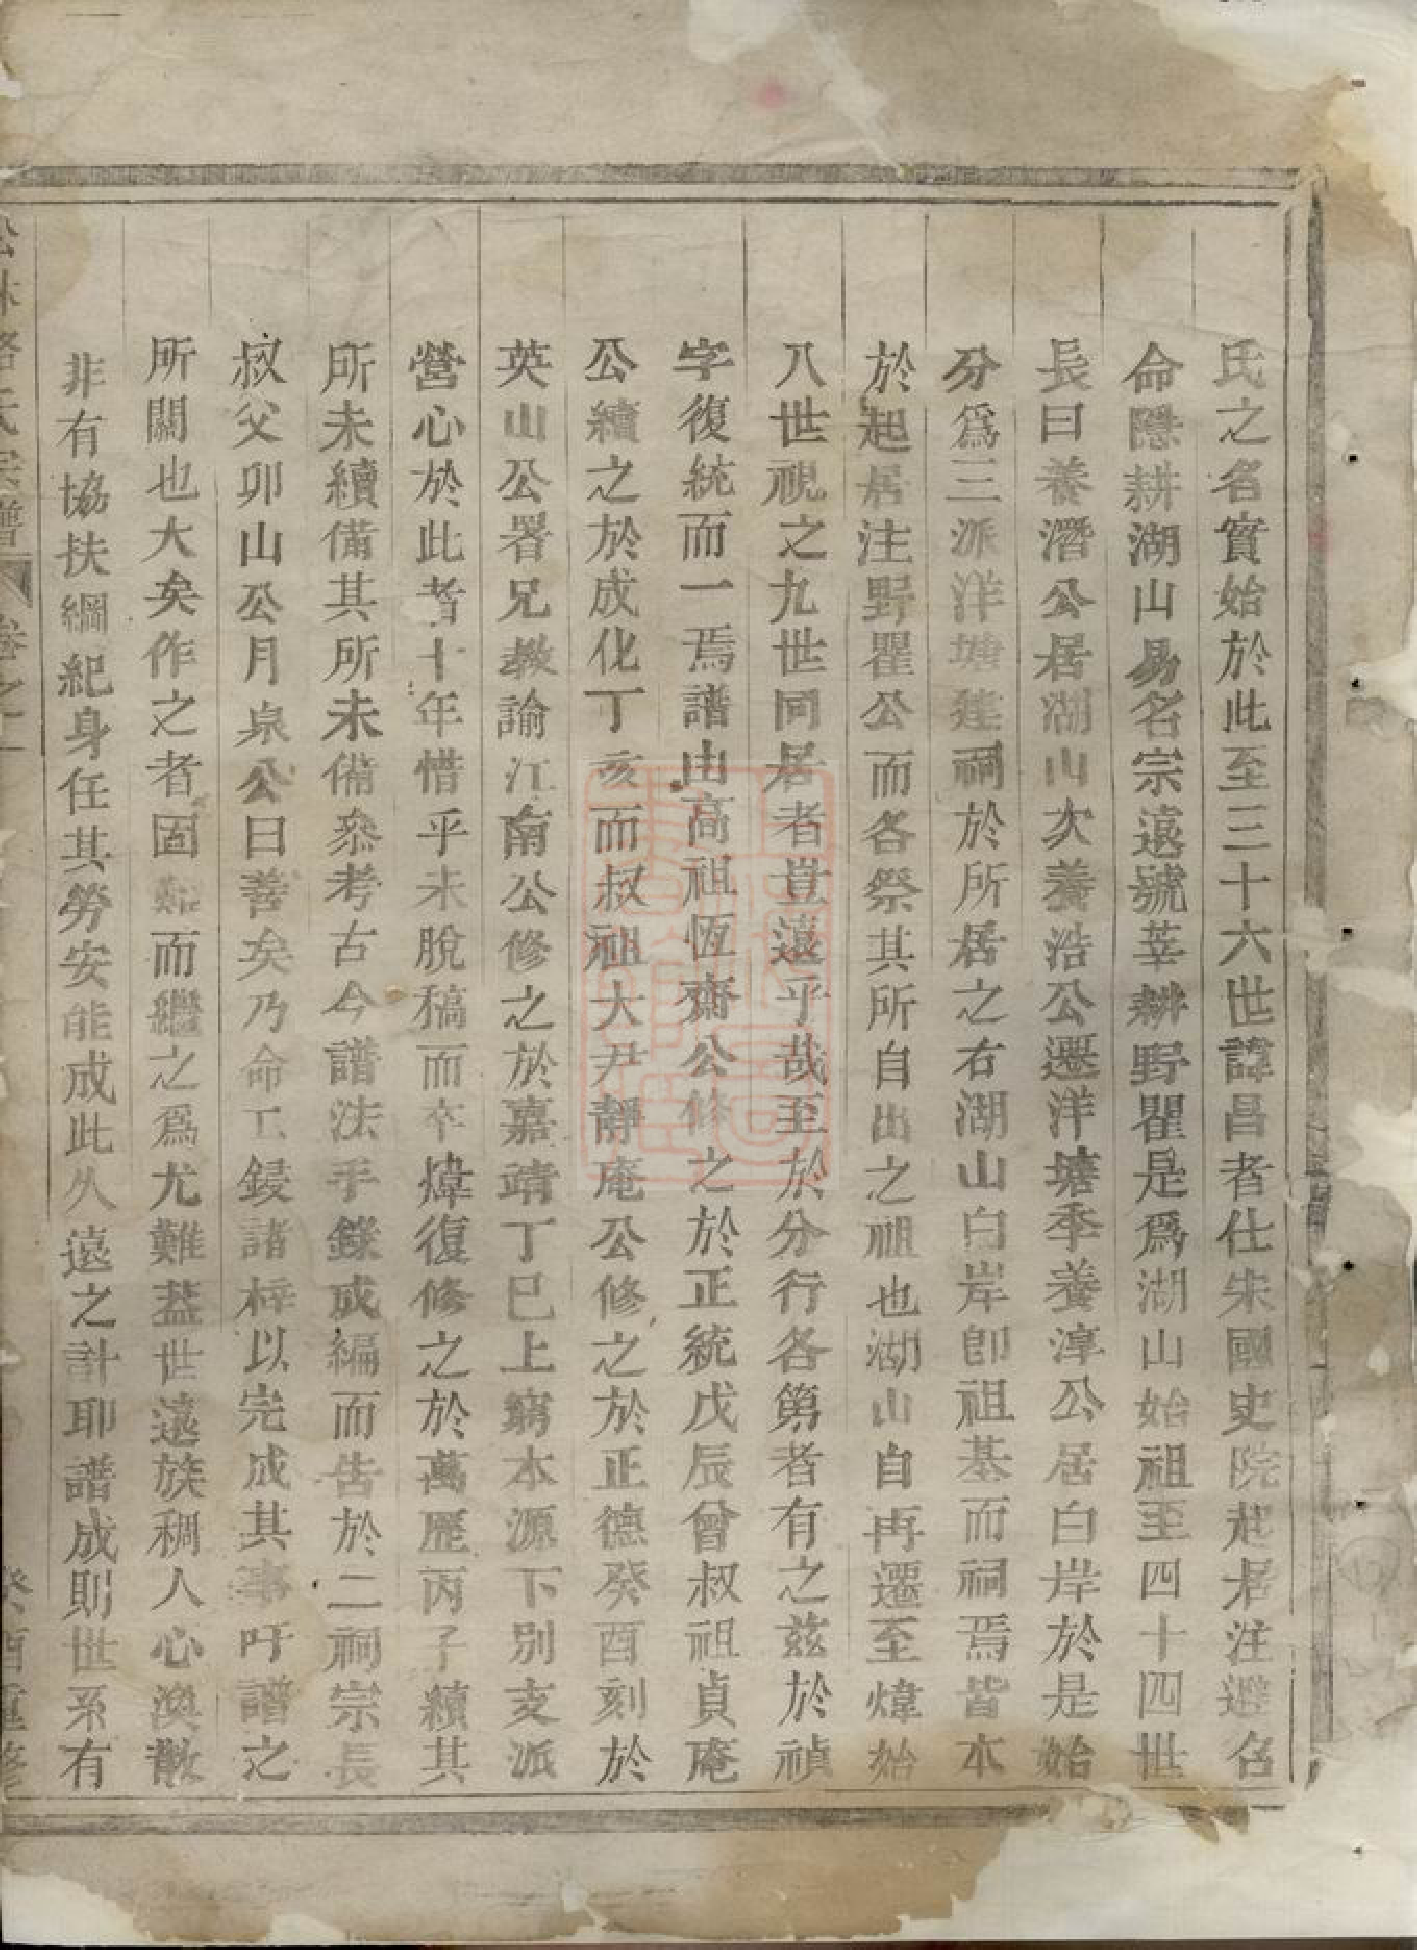 氏之名實始於此至三十六世諱昌者仕宋國史院起居注避名
命隱耕湖山易名宗遠號莘耕野瞿是爲湖山始祖至四十四世
長曰養潛公居湖山次養浩公遷洋塘季養淳公居白岸於是始
分爲三派洋塘建祠於所居之右湖山白岸卽祖基而祠焉皆本
於起居注野瞿公而各祭其所自出之祖也湖山自再遷至煒始
八世視之九世同居者豈遠乎哉至於分行各第者有之茲於禎
字復統而一焉譜由高祖恆齋公修之於正統戊辰曾叔祖貞庵
公續之於成化丁亥而叔祖大尹靜庵公修之於正德癸酉刻於
英山公署兄教諭江南公修之於嘉靖丁巳上窮本源下別支派
營心於此者十年惜乎未脫稿而卒煒復修之於萬歷丙子續其
所未續備其所未備叅考古今譜法手錄成編而告於二祠宗長
叔父卯山公月泉公曰善矣乃命工鋟諸梓以完成其事吁譜之
所關也大矣作之者固難而繼之爲尤難蓋世遠族稠人心渙散
非有協扶綱紀身任其勞安能成此久遠之計耶譜成則世系有
松林駱氏宗譜 卷之上 癸酉重修